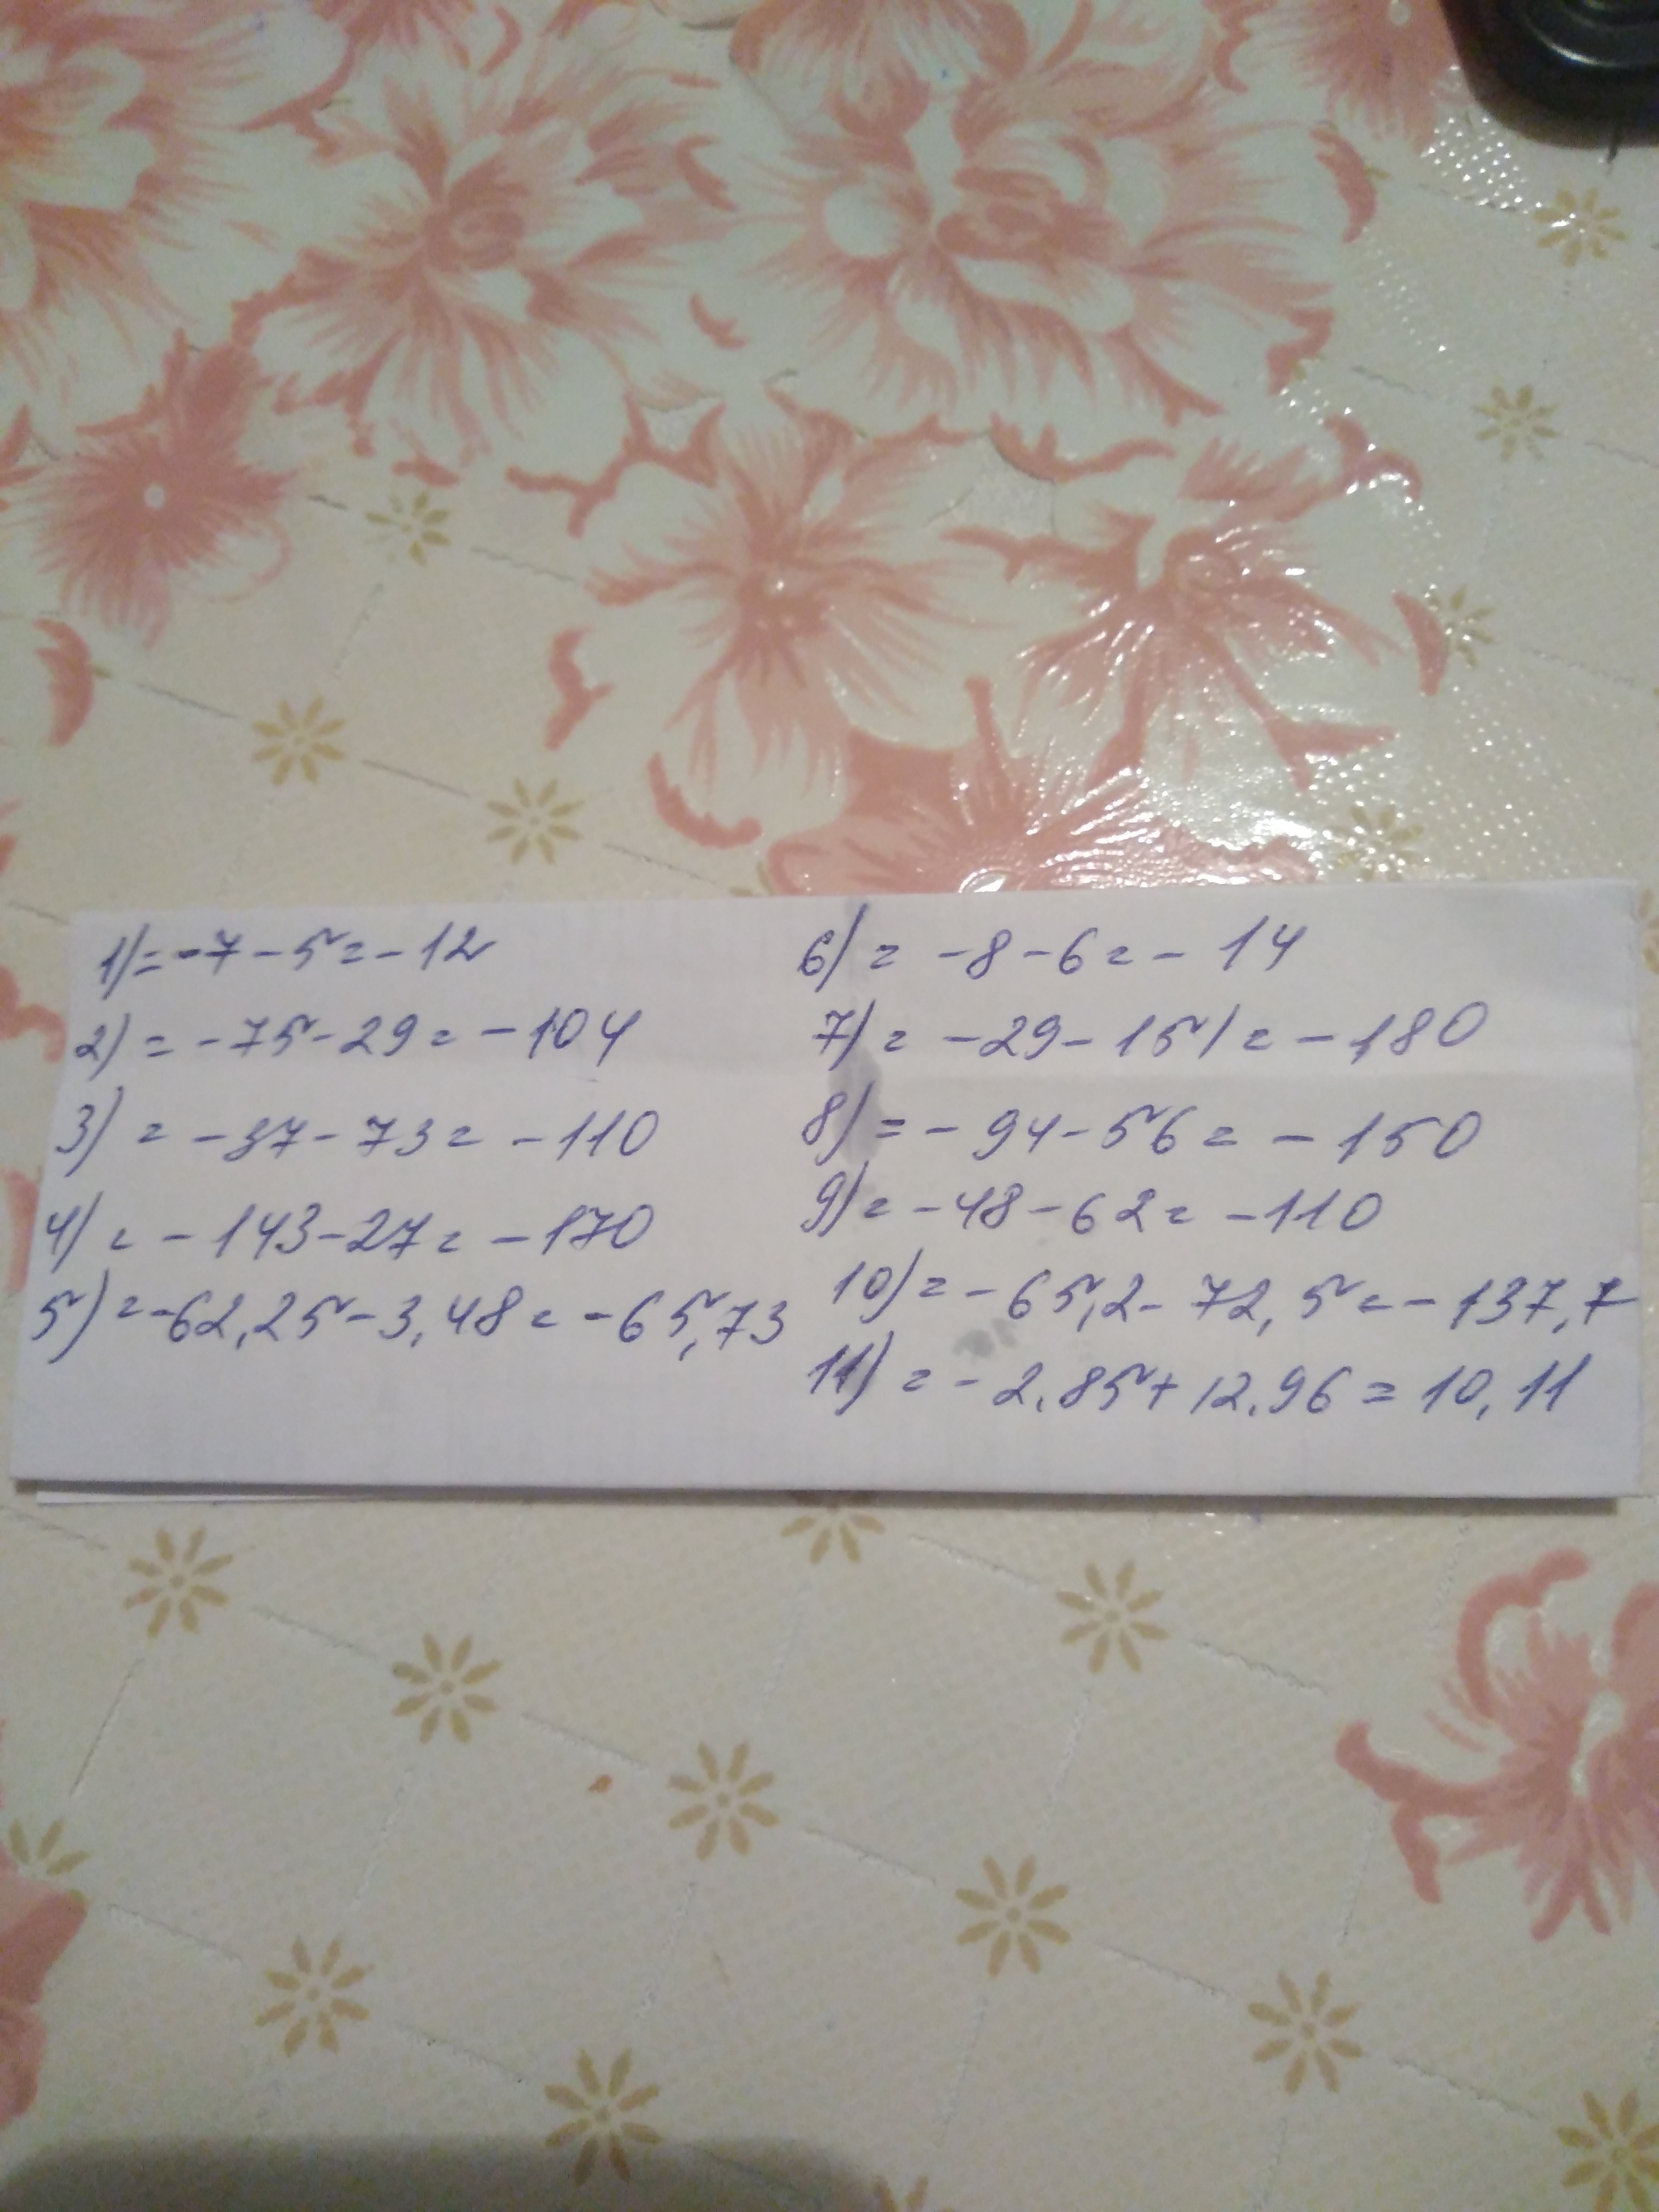 1) = -7 - 5 = -12
2) = -75 - 29 = -104
3) = -37 - 73 = -110
4) = -143 - 27 = -170
5) = -62,25 - 3,48 = -65,73
6) = -8 - 6 = -14
7) = -29 - 151 = -180
8) = -94 - 56 = -150
9) = -48 - 62 = -110
10) = -65,2 - 72,5 = -137,7
11) = -2.85 + 12.96 = 10,11